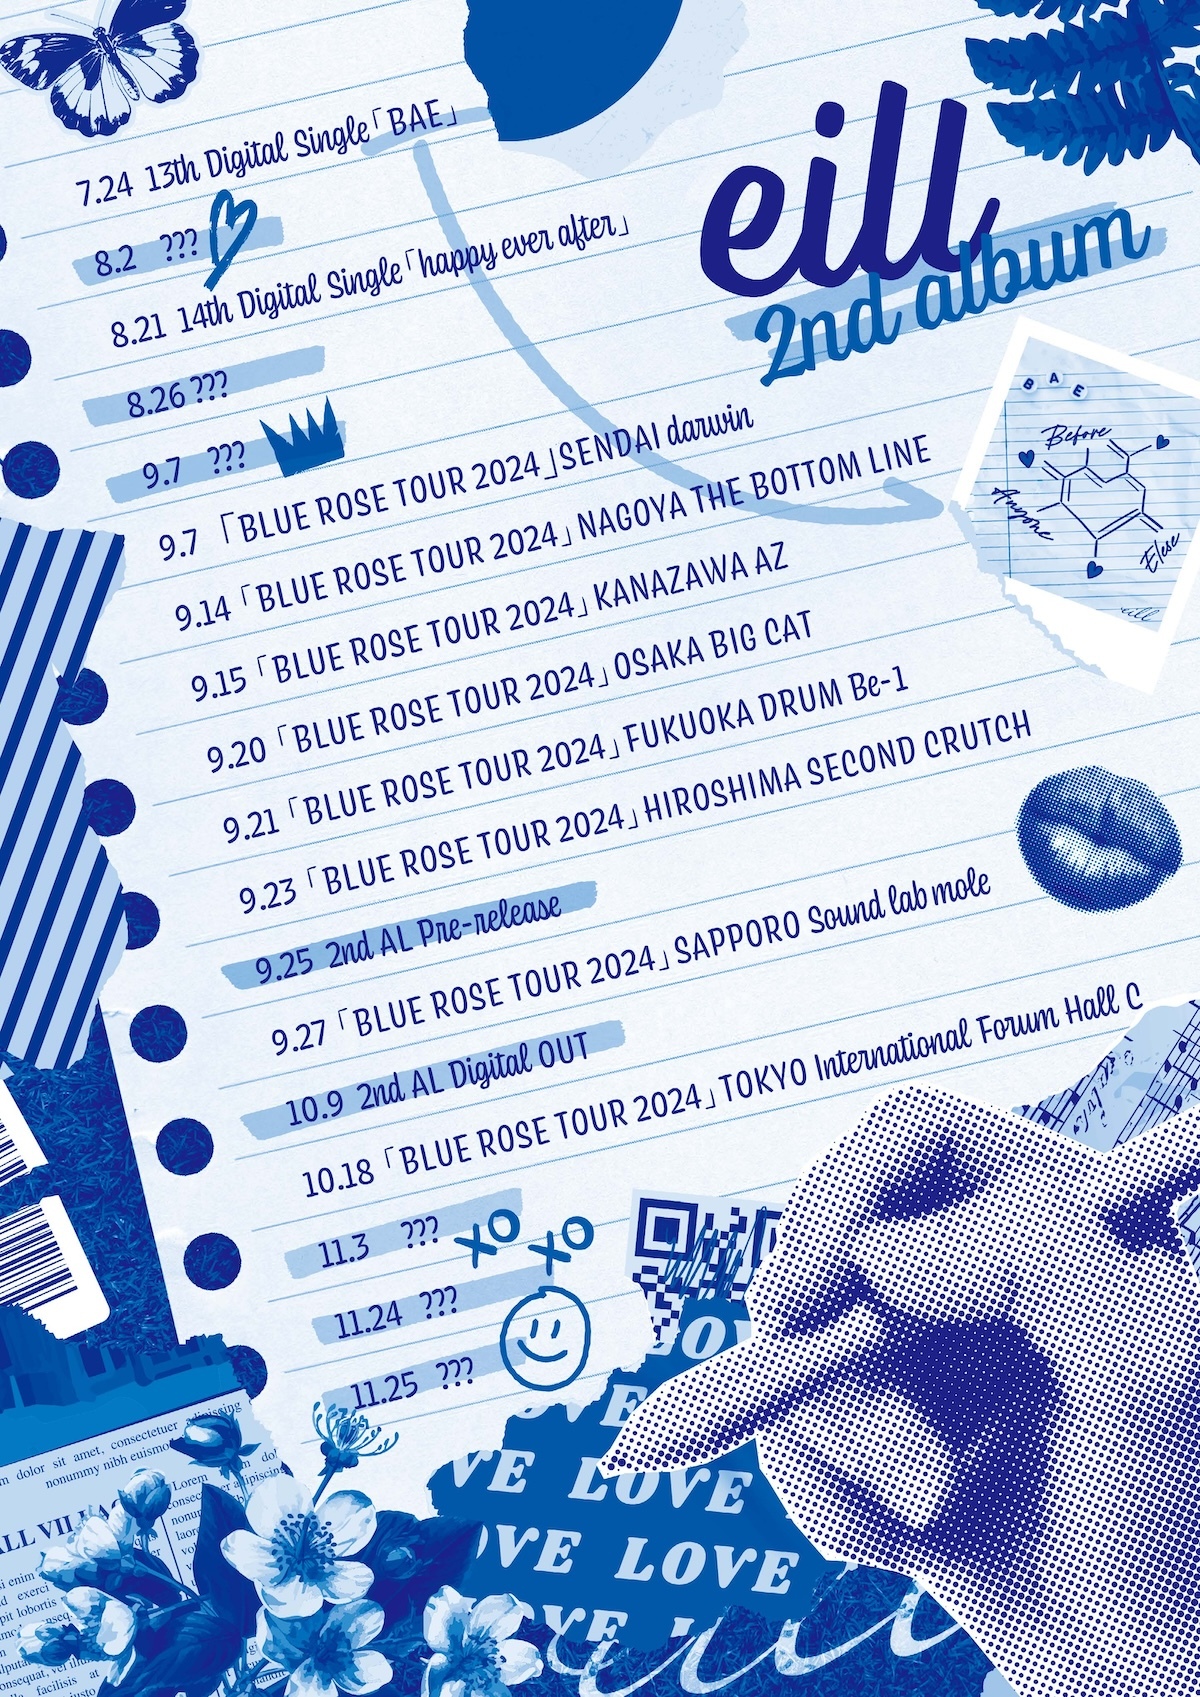 eill
2nd album
7.24 13th Digital Single「BAE」
8.2 ???
8.21 14th Digital Single「happy ever after」
8.26 ???
9.7 ???
9.7 「BLUE ROSE TOUR 2024」SENDAI darwin
9.14「BLUE ROSE TOUR 2024」NAGOYA THE BOTTOM LINE
9.15「BLUE ROSE TOUR 2024」KANAZAWA AZ
9.20「BLUE ROSE TOUR 2024」OSAKA BIG CAT
9.21「BLUE ROSE TOUR 2024」FUKUOKA DRUM Be-1
9.23「BLUE ROSE TOUR 2024」HIROSHIMA SECOND CRUTCH
9.25 2nd AL Pre-release
9.27「BLUE ROSE TOUR 2024」SAPPORO Sound lab mole
10.9 2nd AL Digital OUT
10.18「BLUE ROSE TOUR 2024」TOKYO International Forum Hall C
11.3 ???
XO XO
11.24 ???
11.25 ???
BAE
Before
Anyone
Elese
eill
LOV
OVE
VE LOVE
OVE LOVE
dolor sit amet, consectetuer adipiscing
nonummy nibh euismo
Lorem